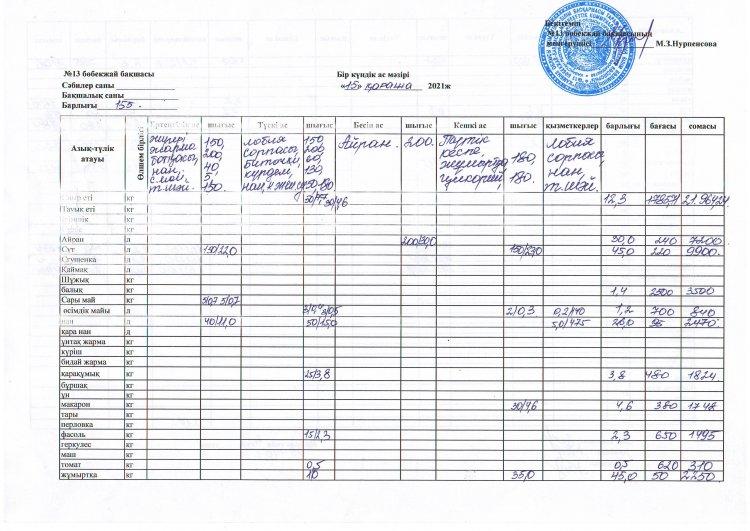 Бекітемін
№13 бөбекжай бақшасының
меңгерушісі М.З.Нурпенсова
№13 бөбекжай бақшасы
Бір күндік ас мәзірі
Сәбилер саны
«15» қараша 2021ж
Бақшалық саны
Барлығы 155.
Азық-түлік атауы Өлшем бірлігі Ертеңгілік ас шығыс Түскі ас шығыс Бесін ас шығыс Кешкі ас шығыс қызметкерлер барлығы бағасы сомасы
жүгері жарма ботқасы, нан, с.май, т.шәй. 150, 200, 40, 5, 150. лобия сорпасы, биточки, күрдем, 150, 200, 60, 130, Айран. 200. 180, 180. лобия сорпасы, нан, т.шәй.
Сиыр еті кг 12,3
Тауық еті кг
кг
кг
Айран л 200/30,0 30,0 240 7200
Сүт л 150/22,0 150/23,0 45,0 220 9900.
Сгущенка л
Қаймақ л
Шұжық кг
балық кг 1,4 2500 3500
Сары май кг 5/0,7 5/0,7
өсімдік майы л 2/0,3 0,2/40 1,2 700 840
нан л 40/11,0 50/15,0 5,0/475 26,0 95 2470
қара нан д
ұнтақ жарма кг
күріш кг
бидай жарма кг
қарақұмық кг 25/3,8 3,8 480 1824
бұршақ кг
ұн кг
макарон кг 30/4,6 4,6 380 1748
тары кг
перловка кг
фасоль кг 15/2,3 2,3 650 1495
геркулес кг
маш кг
томат кг 0,5 0,5 620 310
жұмыртқа кг 10 35,0 45,0 50 2250